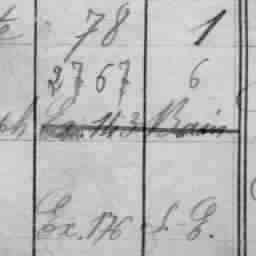 78 1
2767 6
Ex. 143 Bain
Ex. 176 S. E.